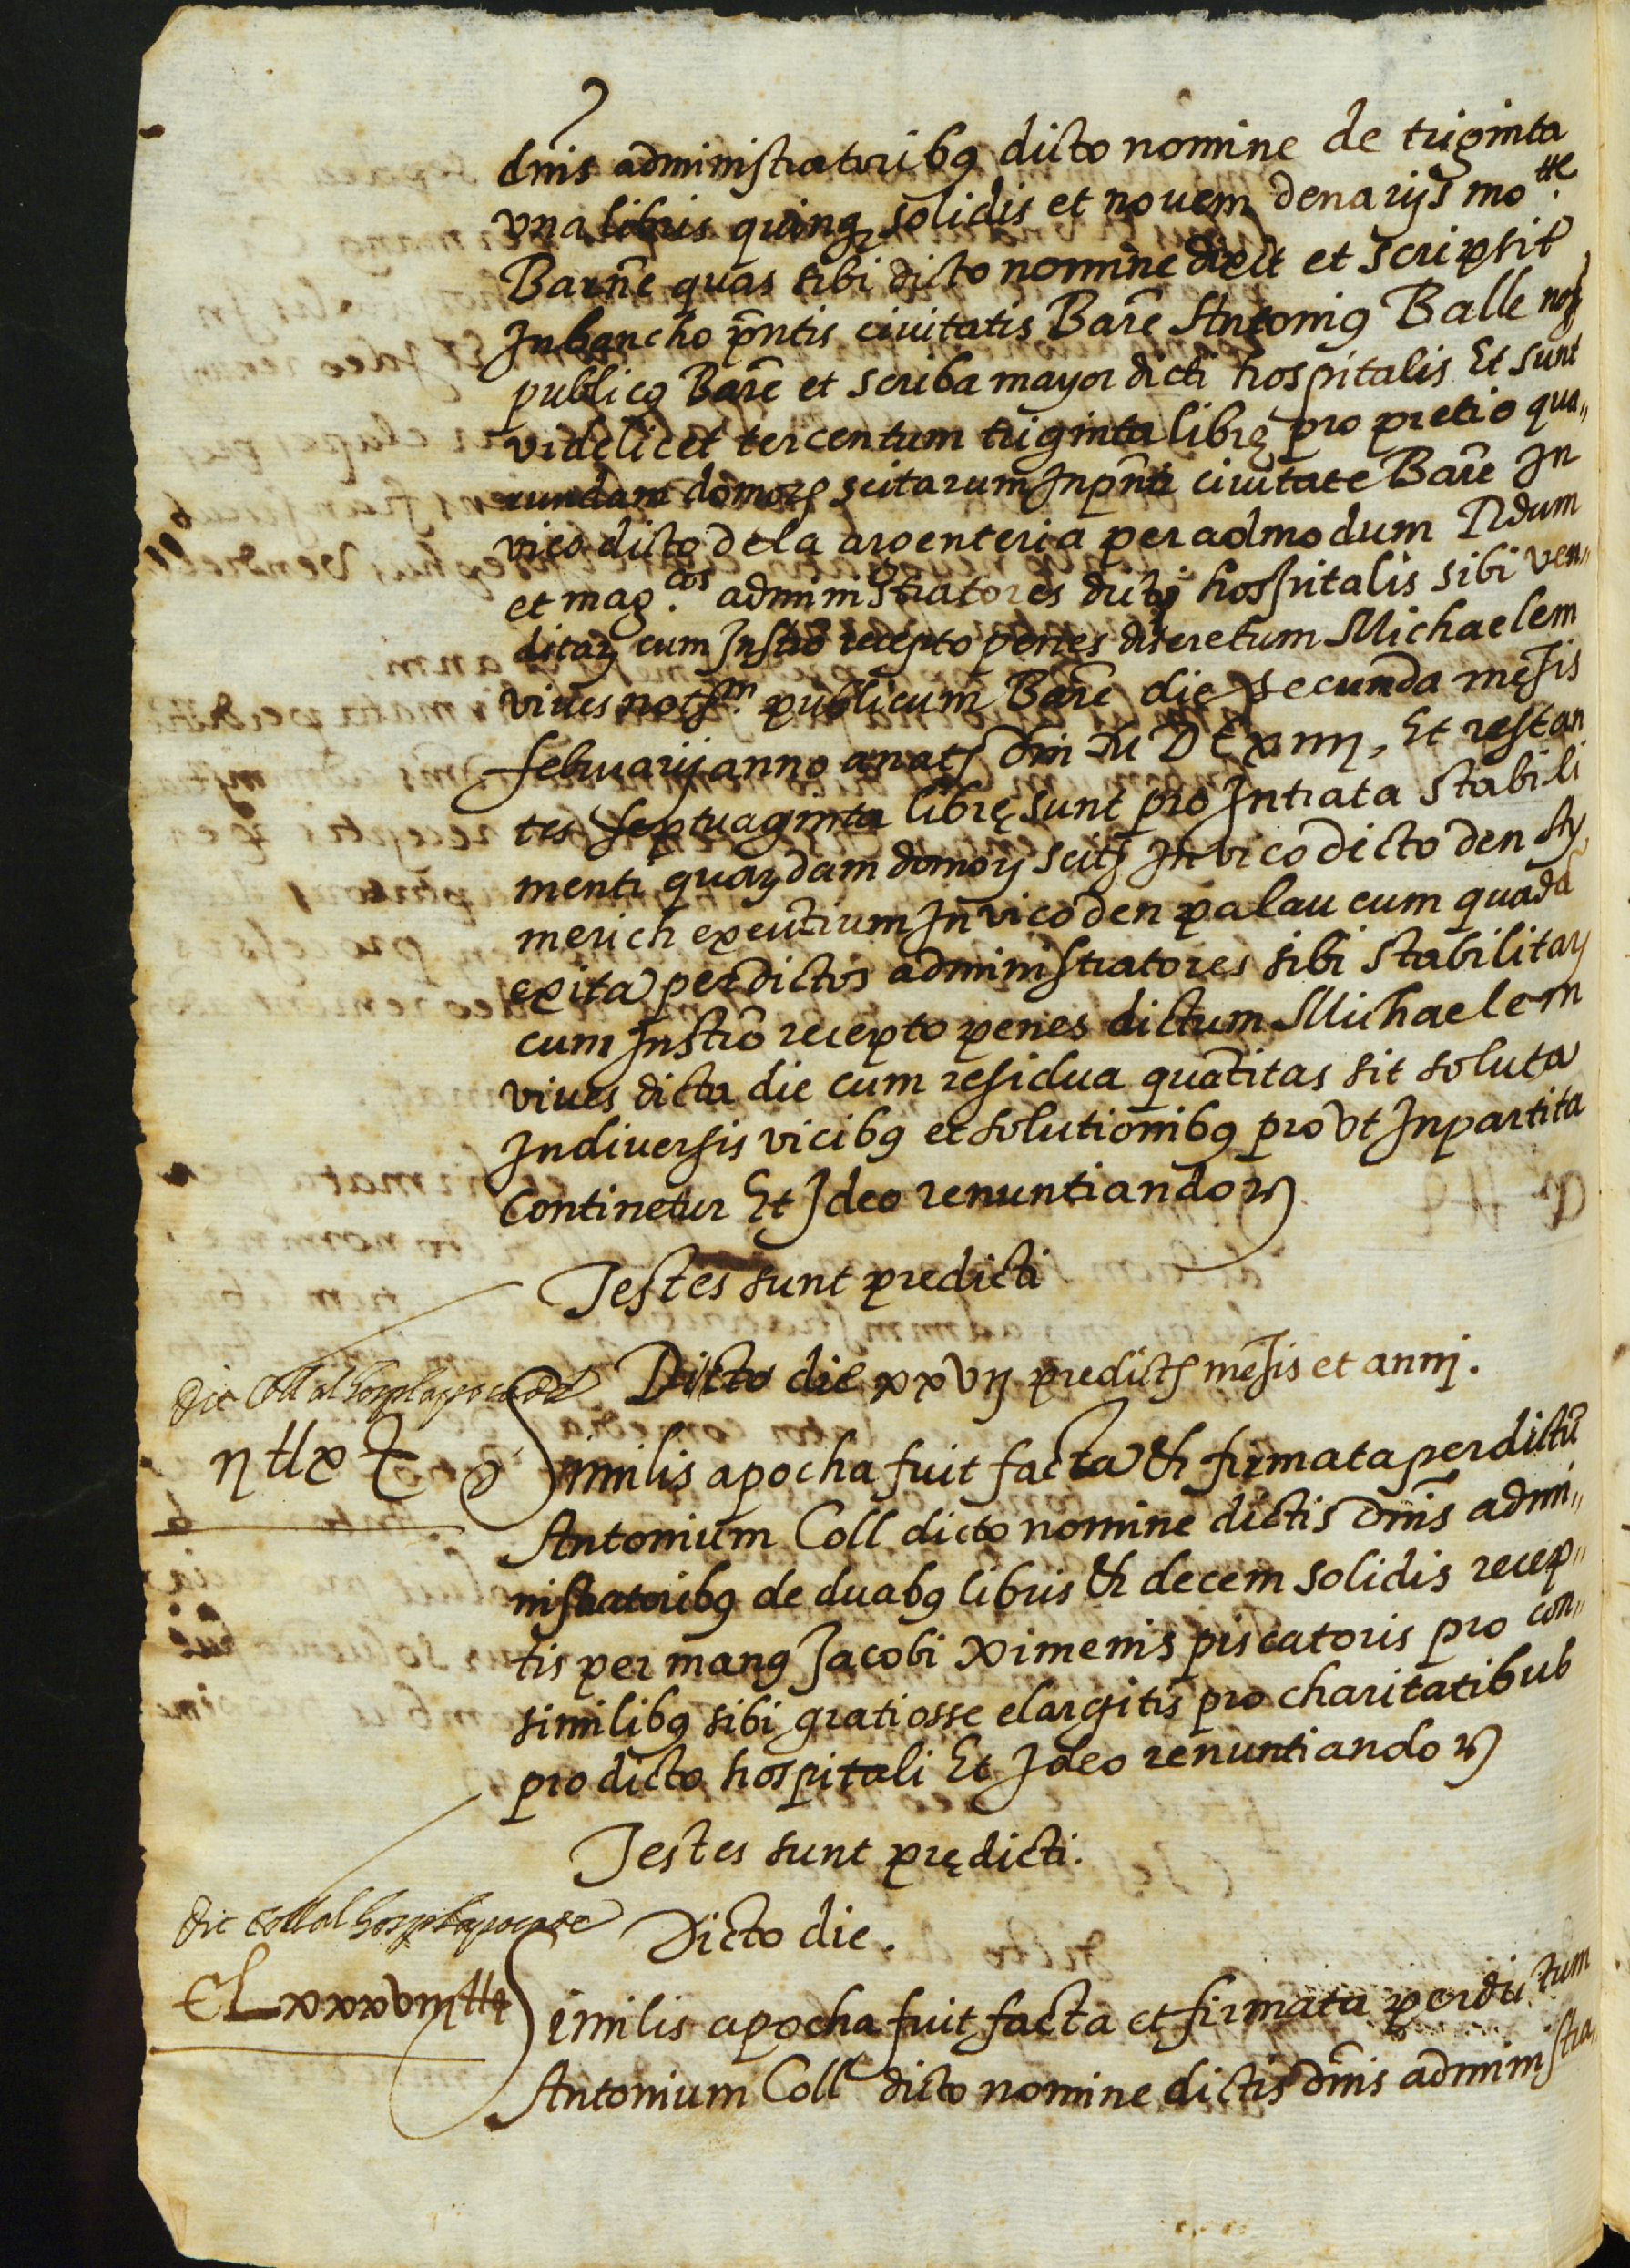 dnis administratoribꝯ dicto nomine de triginta
vna libris quinqꝫ solidis et novem denariis mo.te
Barñe quas sibi dicto nomine dixit et scripsit
In bancho pñtis civitatis Barñe Antoniꝯ Balle notꝭ
publicꝯ Barñe et scriba mayor dicti hospitalis Et sunt
videlicet tercentum triginta librę pro pretio qua„
rundam domoꝝ scitarum In pñti civitate Barñe In
vico dicto de la argenteria per admodum Rdum
et mag.cos administratores dictj hospitalis sibi ven„
ditaꝝ cum Instro recepto penes discretum Michaelem
vives notꝭm. publicum Barñe die secunda mesis
februarij anno a natꝭ dñi M D C x iiij, Et restan
tes septuaginta librę sunt pro Intrata stabili
menti quaꝝdam domoꝝ scitꝭ In vico dicto den Ay
merich exeutium In vico den palau cum quadā
exita per dictos administratores sibi stabilitaꝝ
cum Instro recepto penes dictum Michaelem
vives dicta die cum residua quatitas sit soluta
In diversis vicibꝯ et solutionibꝯ pro vt In partita
continetur Et Ideo renuntiando ꝛc
Testes sunt predicti
Dicto die xxvij predictꝭ mesis et annj.
ij ℔ x ẜ
Similis apocha fuit facta & firmata per dictū
Antonium Coll dicto nomine dictis dñis admi„
nistratoribꝯ de duabꝯ libris & decem solidis recep„
tis per manꝯ Jacobi Ximenis piscatoris pro con„
similibꝯ sibi gratiosse elargitis pro charitatibus
pro dicto hospitali Et Ideo renuntiando ꝛc
Testes sunt prędicti.
Dicto die.
CLxxxviij ℔
Similis apocha fuit facta et firmata per dictum
Antonium Coll dicto nomine dictis dñis administra„